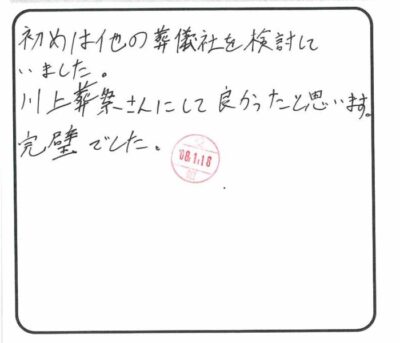 初めは他の葬儀社を検討して
いました。
川上葬祭さんにして良かったと思います。
完璧でした。
'08.1.18